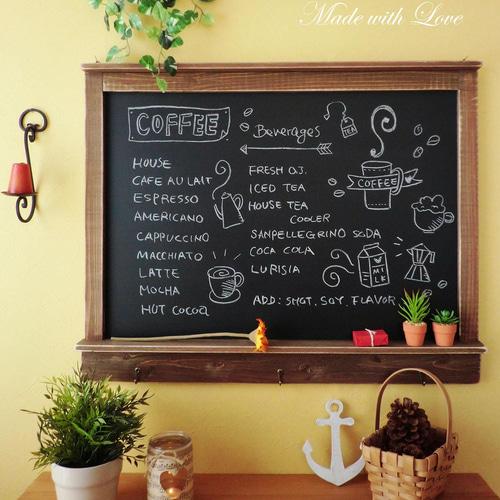 Made with Love
COFFEE
HOUSE
CAFE AU LAIT
ESPRESSO
AMERICANO
CAPPUCCINO
MACCHIATO
LATTE
MOCHA
HOT COCOA
Beverages
FRESH O.J.
ICED TEA
HOUSE TEA
COOLER
SANPELLEGRINO SODA
COCA COLA
LURISIA
ADD: SHOT, SOY, FLAVOR
TEA
COFFEE
MILK